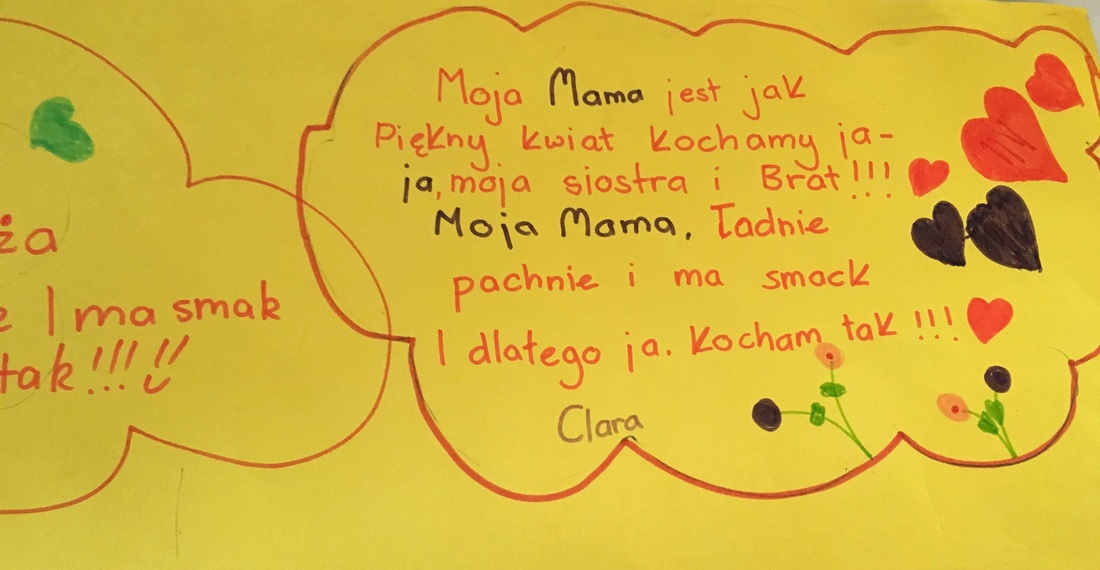 ża
I ma smak
tak!!!!!
Moja Mama jest jak
Piękny kwiat kochamy ja-
ja, moja siostra i Brat!!!
Moja Mama, Ładnie
pachnie i ma smack
I dlatego ja. Kocham tak!!!
Clara